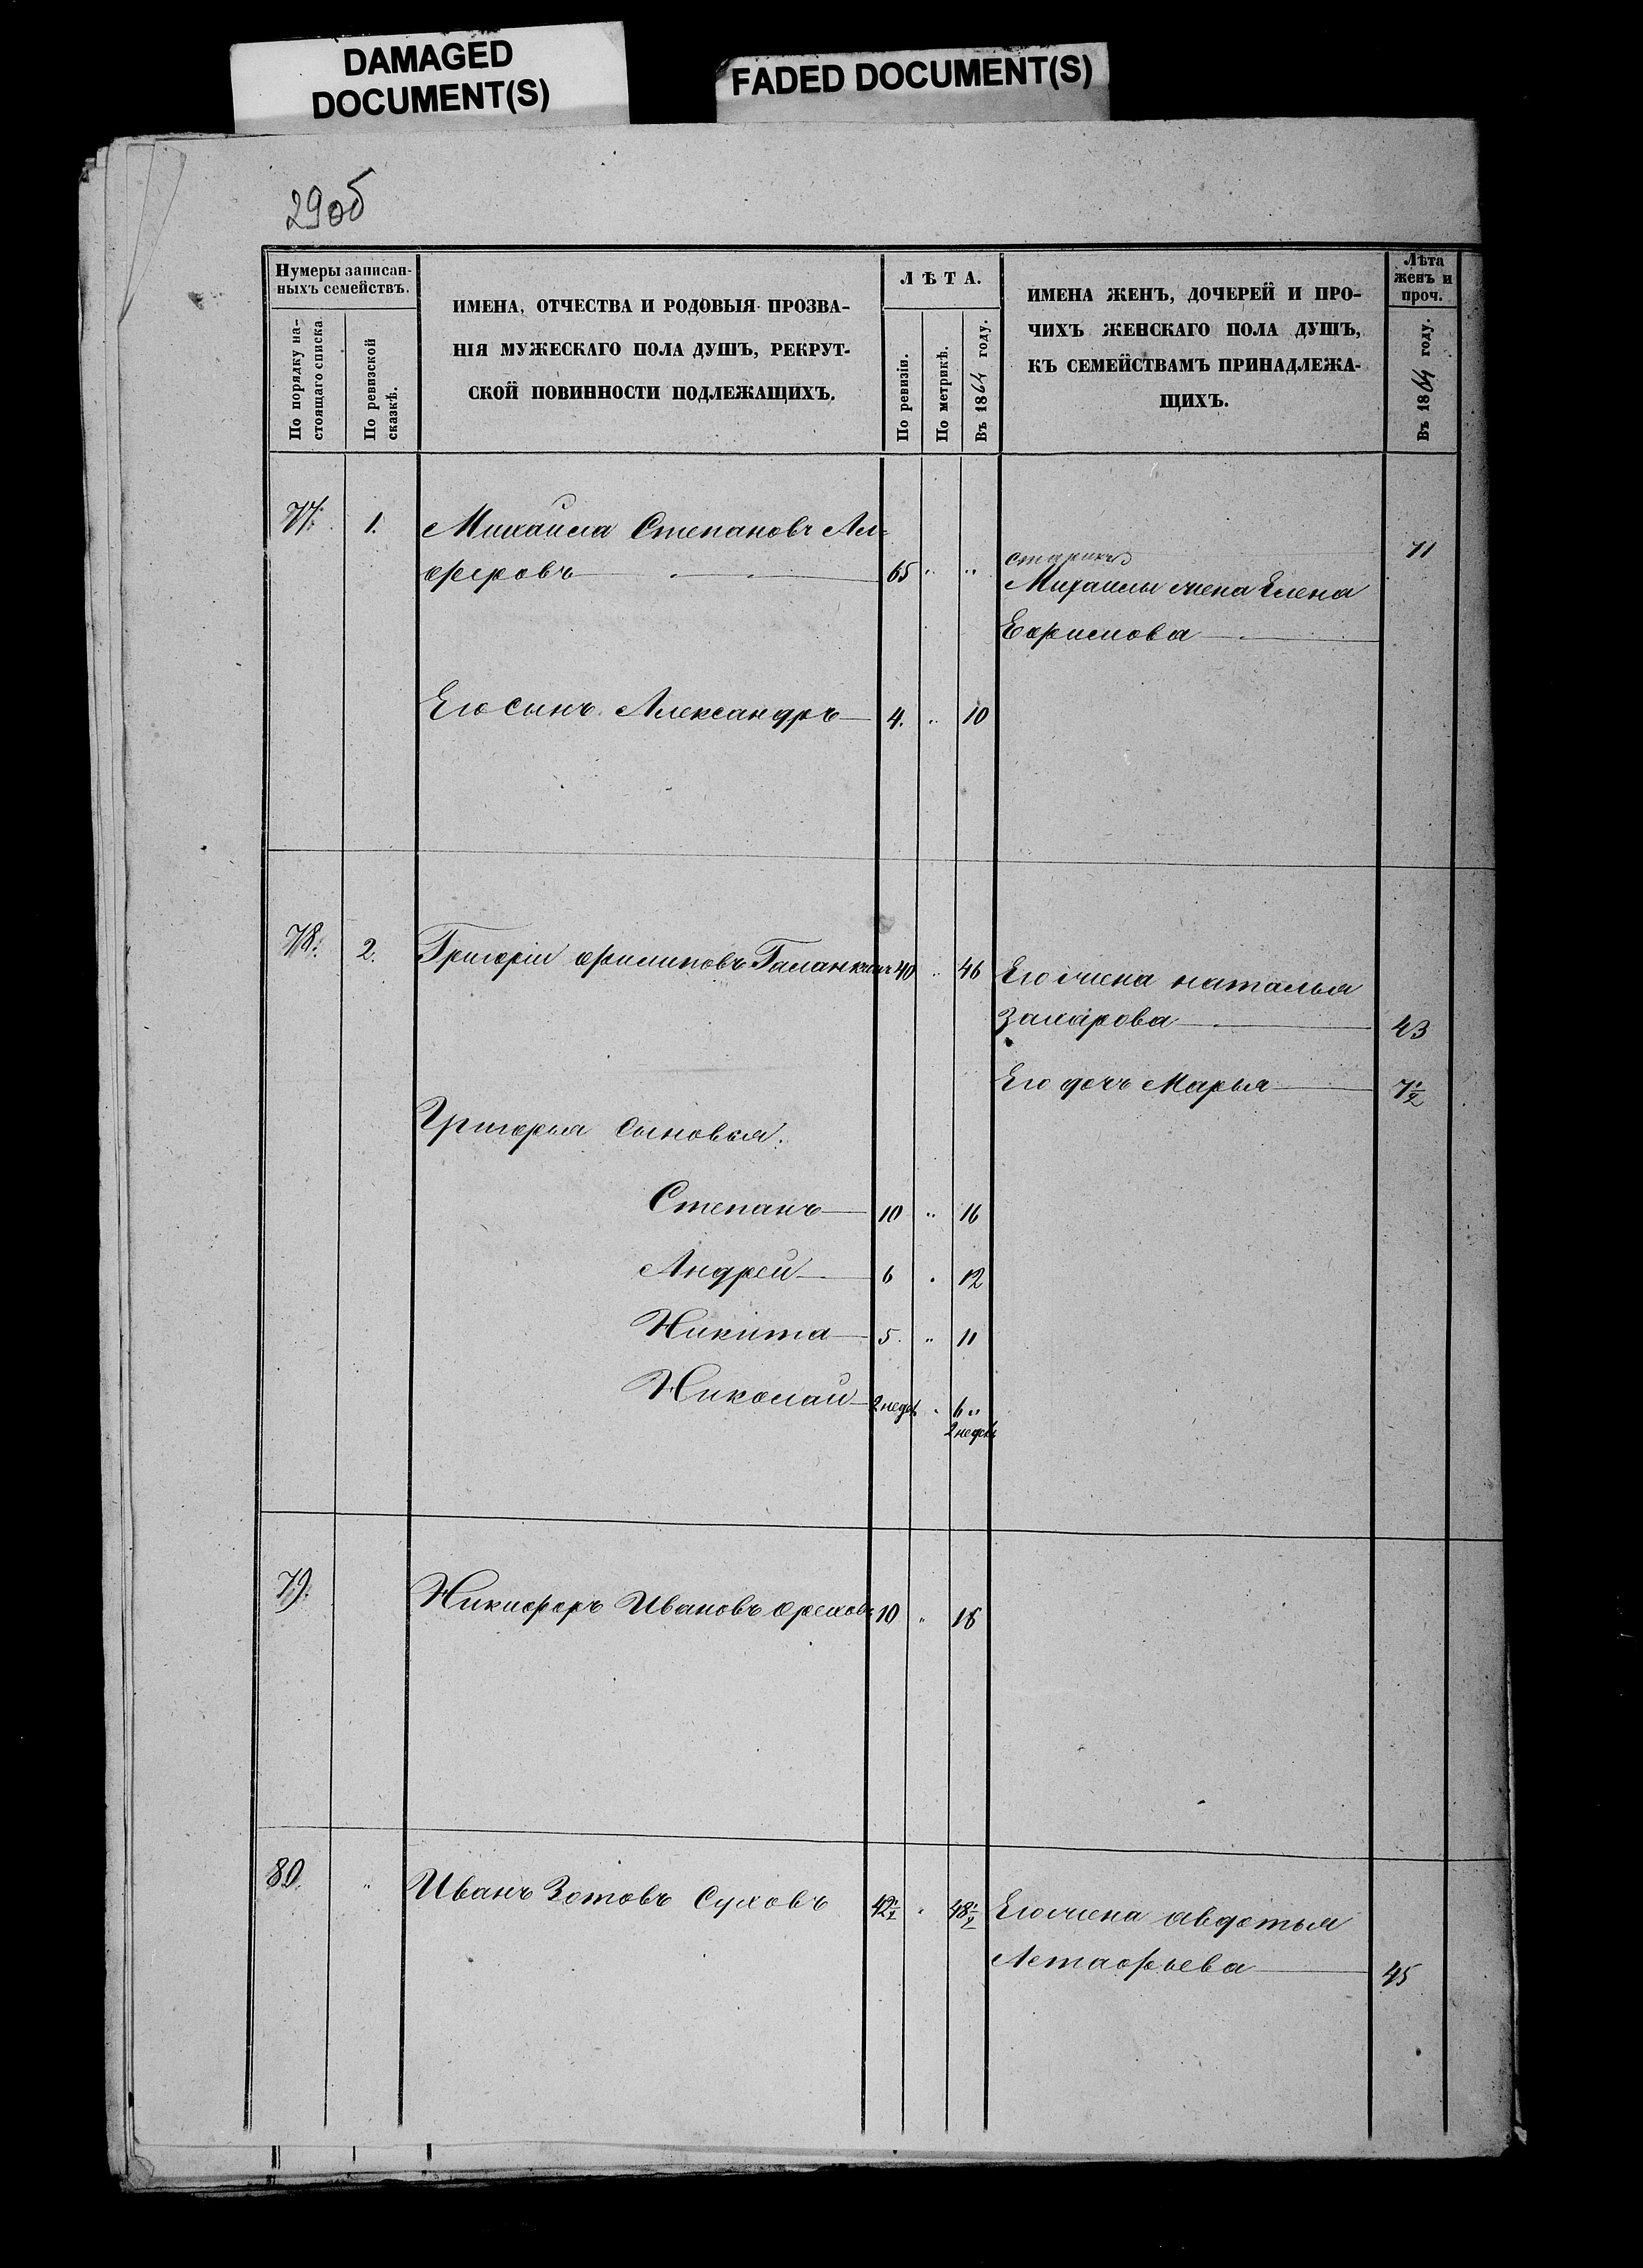 DAMAGED
DOCUMENT(S)
FADED DOCUMENT(S)
29об
Нумеры записан-
ныхъ семействъ.
По порядку на-
стоящаго списка.
По ревизской
сказкѣ.
ИМЕНА, ОТЧЕСТВА И РОДОВЫЯ ПРОЗВА-
НІЯ МУЖЕСКАГО ПОЛА ДУШЪ, РЕКРУТ-
СКОЙ ПОВИННОСТИ ПОДЛЕЖАЩИХЪ.
ЛѢТА.
По ревизіи.
По метрикѣ.
Въ 1864 году.
ИМЕНА ЖЕНЪ, ДОЧЕРЕЙ И ПРО-
ЧИХЪ ЖЕНСКАГО ПОЛА ДУШЪ,
КЪ СЕМЕЙСТВАМЪ ПРИНАДЛЕЖА-
ЩИХЪ.
Лѣта
женъ и
проч.
Въ 1864 году.
77. 1. Михайла Степановъ Ал=
феровъ 65 " "
71
Михаилы жена Елена
Ефимова
Его сынъ Александръ 4. " 10
78. 2. Григоріи Филиповъ Галанкинъ 40 " 46
Его жена наталья
Захарова 43
Его дочь Марья 7 1/2
Григорья сыновья.
Степанъ 10 " 16
Андрей 6 " 12
Никита 5. " 11
Николай 2 недѣ " 6 "
2 недѣль
79. Никифоръ Ивановъ Ореховъ 10 " 16
80. " Иванъ Зотовъ Суховъ 42 1/2 " 48 1/2
Его жена авдотья
Астафьева 45